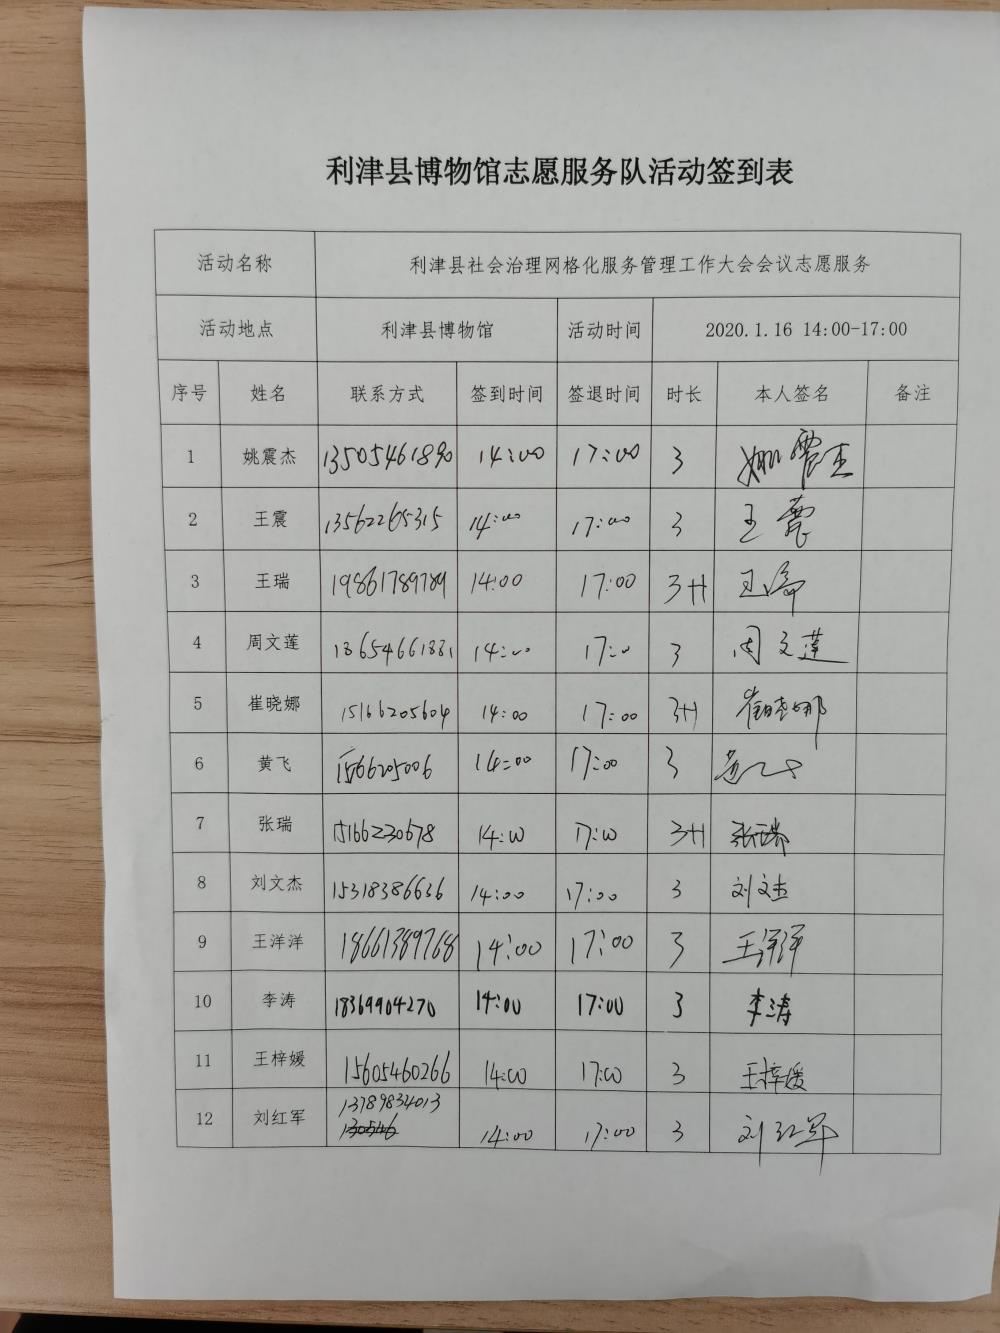 利津县博物馆志愿服务队活动签到表
活动名称 利津县社会治理网格化服务管理工作大会会议志愿服务
活动地点 利津县博物馆 活动时间 2020.1.16 14:00-17:00
序号 姓名 联系方式 签到时间 签退时间 时长 本人签名 备注
1 姚震杰 13505461890 14:00 17:00 3 姚震杰
2 王震 13562265315 14:00 17:00 3 王震
3 王瑞 19861789789 14:00 17:00 3H 王瑞
4 周文莲 13654661331 14:00 17:00 3 周文莲
5 崔晓娜 15166205604 14:00 17:00 3H 崔晓娜
6 黄飞 14:00 17:00 3
7 张瑞 15166230678 14:00 17:00 3H 张瑞
8 刘文杰 15318386636 14:00 17:00 3 刘文杰
9 王洋洋 18661389768 14:00 17:00 3 王洋洋
10 李涛 18369904270 14:00 17:00 3 李涛
11 王梓媛 15605460266 14:00 17:00 3 王梓媛
12 刘红军 13789834013 130546 14:00 17:00 3 刘红军